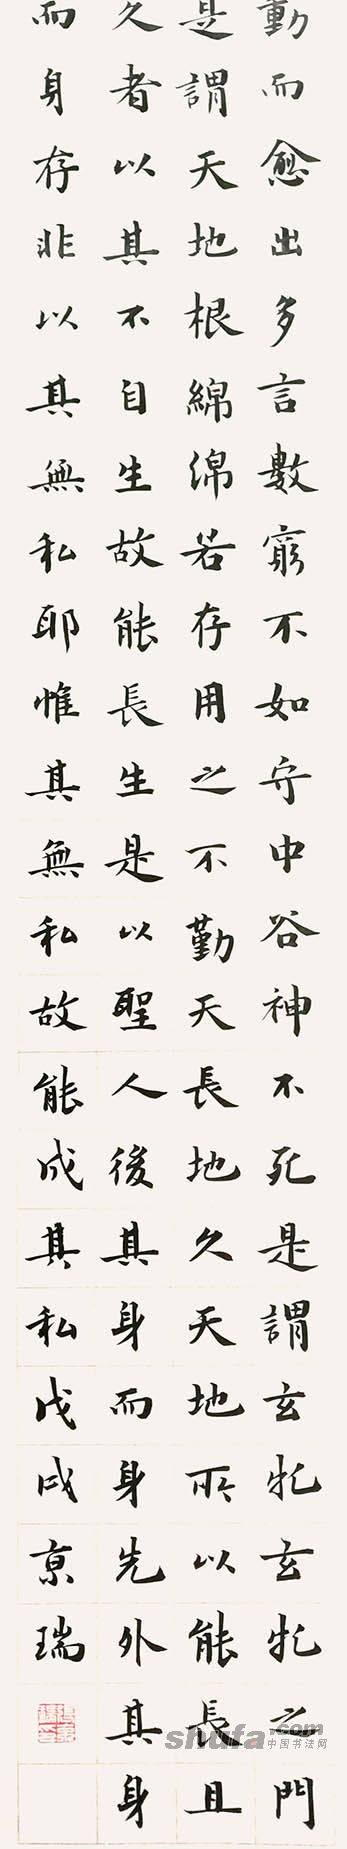 動而愈出多言數窮不如守中谷神不死是謂玄牝玄牝之門
是謂天地根綿綿若存用之不勤天長地久天地所以能長且
久者以其不自生故能長生是以聖人後其身而身先外其身
而身存非以其無私耶惟其無私故能成其私戊戌京瑞
shufa.com
中国书法网